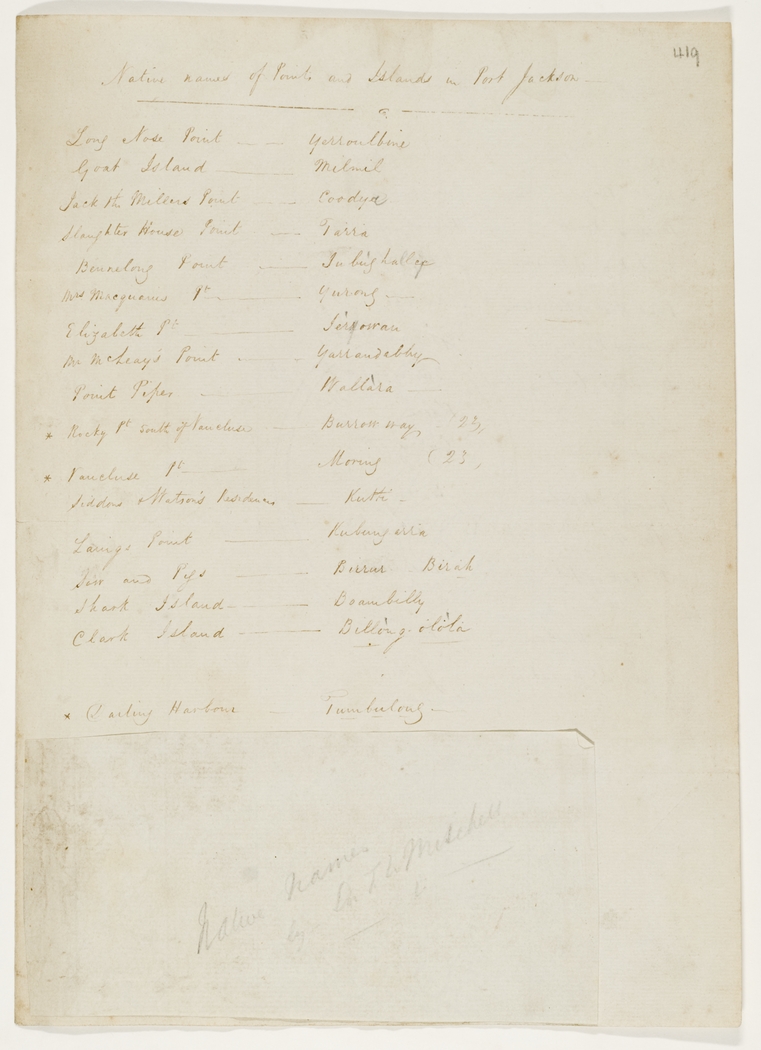 419
Native names of Points and Islands in Port Jackson
Long Nose Point Yerroulbine
Goat Island Milmil
Jack the Millers Point Coodye
Slaughter House Point Tarra
Bennelong Point
Mrs Macquaries Pt Yurong
Elizabeth Pt Jerrowan
Mr McLeay's Point Yarrandabby
Point Piper Wallàra
* Rocky Pt South of Vaucluse Burrow way (23,
* Vaucluse Pt Moring (23,
Siddons & Watson's Residences Kutti
Laings Point Kubungarra
Sow and Pigs Birrur Birah
Shark Island Boambilly
Clark Island Billòng-òlòla
* Darling Harbour Tumbulong
Native names
by Sir T L Mitchell